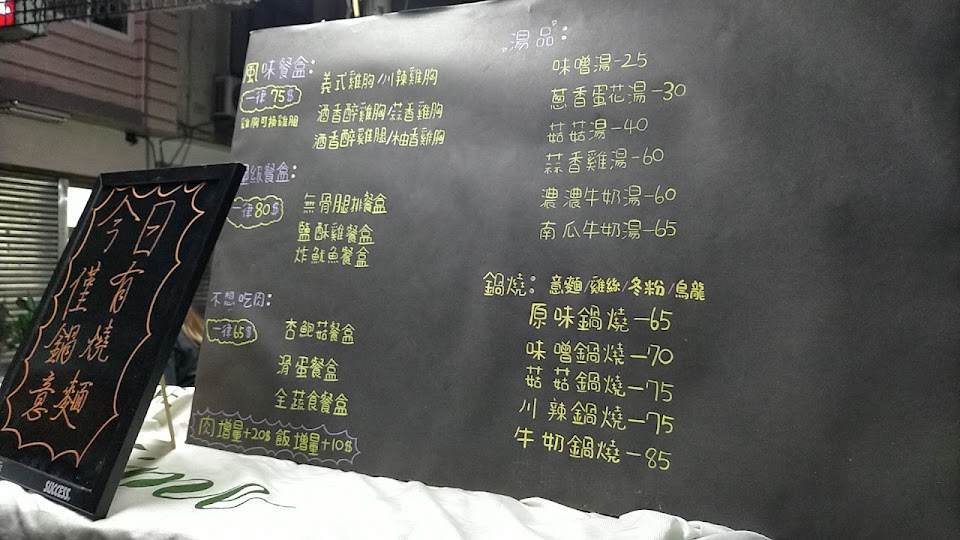 今日
僅有
鍋燒
意麵
SUCCESS
風味餐盒：
一律75$
雞胸可換雞腿
義式雞胸/川辣雞胸
酒香醉雞胸/蒜香雞胸
酒香醉雞腿/柚香雞胸
級餐盒：
一律80$
無骨腿排餐盒
鹽酥雞餐盒
炸魷魚餐盒
不想吃肉：
一律65$
杏鮑菇餐盒
滑蛋餐盒
全蔬食餐盒
肉增量+20$ 飯增量+10$
湯品：
味噌湯-25
蔥香蛋花湯-30
菇菇湯-40
蒜香雞湯-60
濃濃牛奶湯-60
南瓜牛奶湯-65
鍋燒：意麵/雞絲/冬粉/烏龍
原味鍋燒-65
味噌鍋燒-70
菇菇鍋燒-75
川辣鍋燒-75
牛奶鍋燒-85